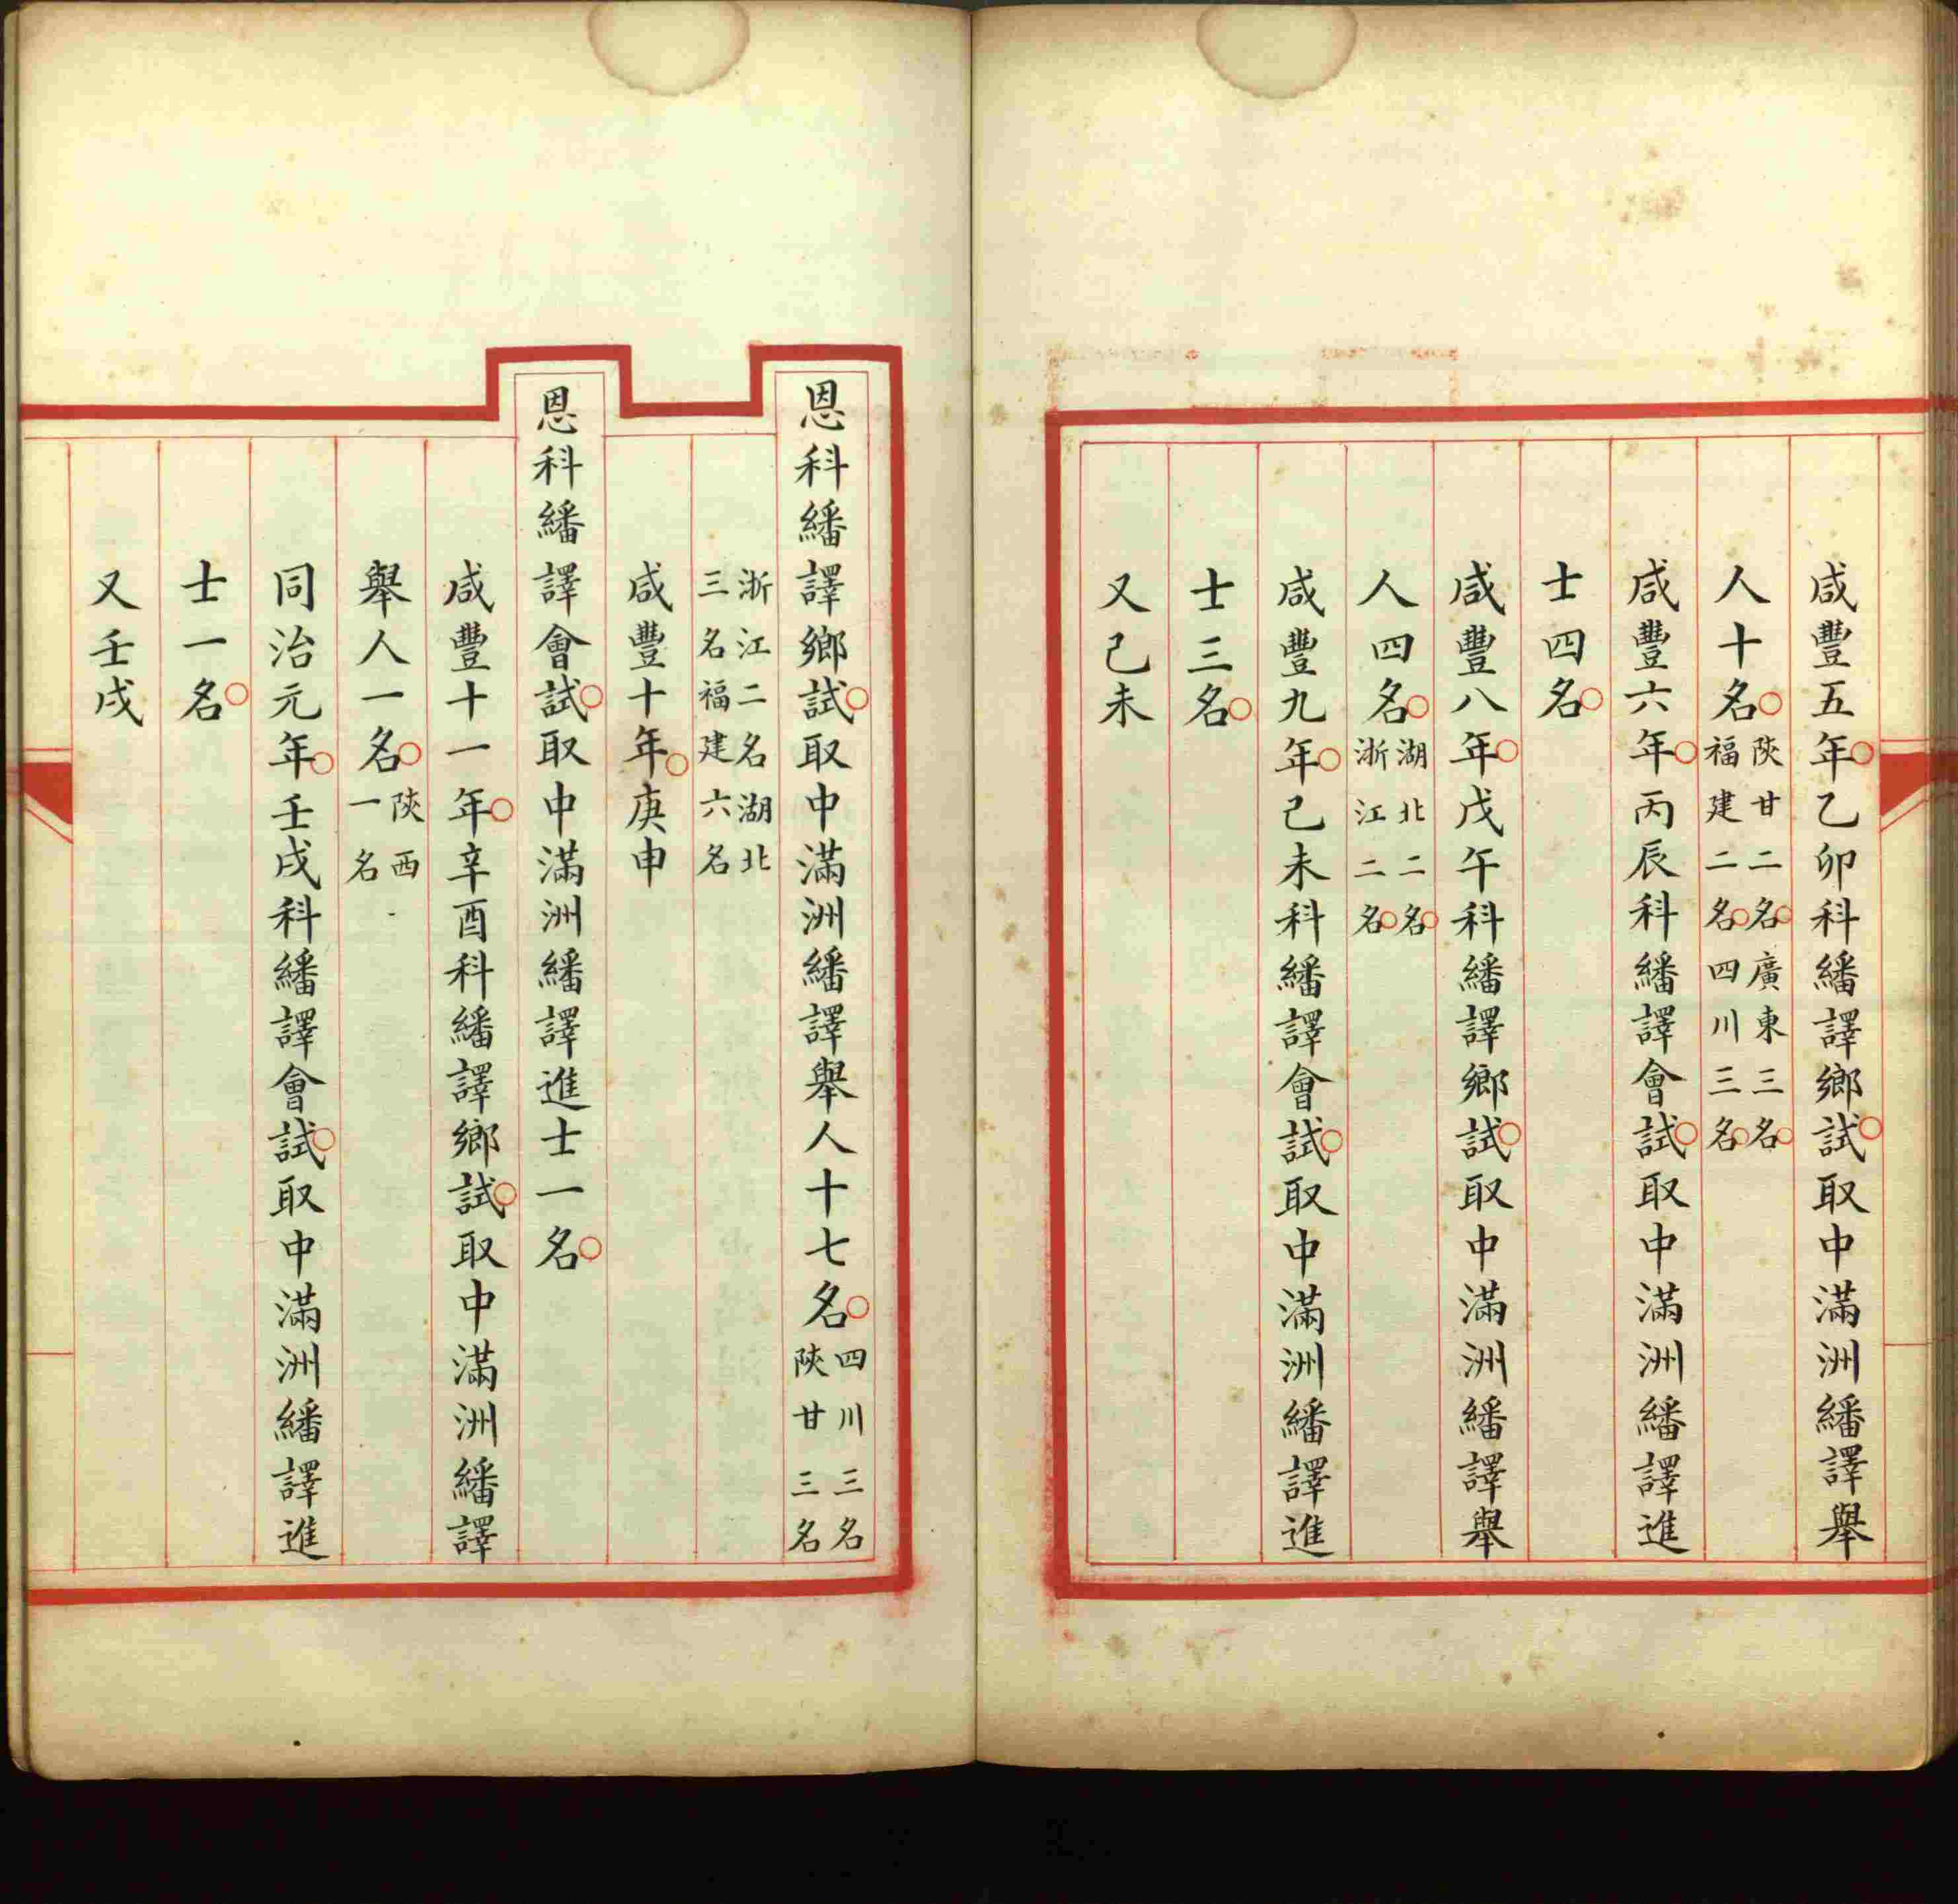 咸豐五年乙卯科繙譯鄉試取中滿洲繙譯舉
人十名陜甘二名廣東三名福建二名四川三名
咸豐六年丙辰科繙譯會試取中滿洲繙譯進
士四名
咸豐八年戊午科繙譯鄉試取中滿洲繙譯舉
人四名湖北二名浙江二名
咸豐九年己未科繙譯會試取中滿洲繙譯進
士三名
又己未
恩科繙譯鄉試取中滿洲繙譯舉人十七名四川三名陜甘三名
浙江二名湖北三名福建六名
咸豐十年庚申
恩科繙譯會試取中滿洲繙譯進士一名
咸豐十一年辛酉科繙譯鄉試取中滿洲繙譯
舉人一名陜西一名
同治元年壬戌科繙譯會試取中滿洲繙譯進
士一名
又壬戌